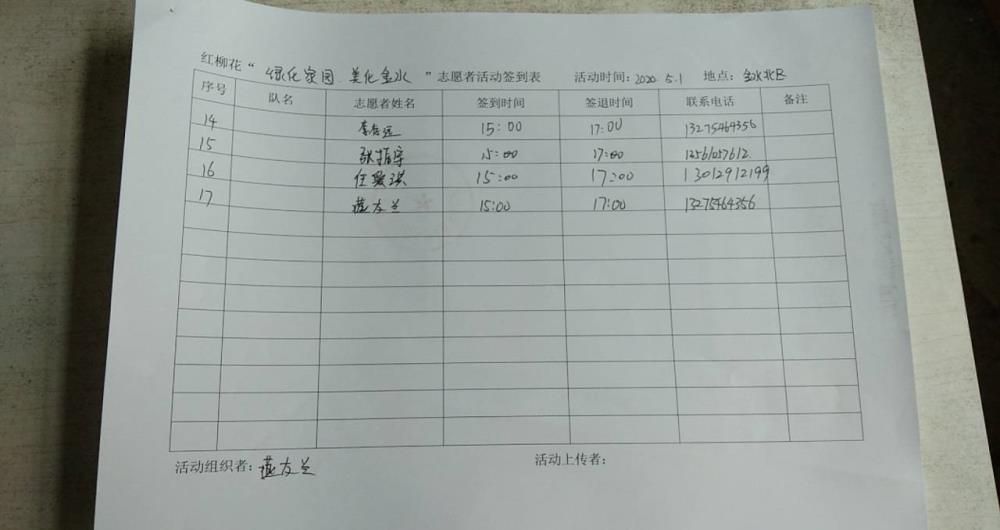 红柳花“绿化家园 美化金水”志愿者活动签到表 活动时间:2020.5.1 地点:金水北区
序号 队名 志愿者姓名 签到时间 签退时间 联系电话 备注
14 15:00 17:00 13275464356
15 张振宇 15:00 17:00 12561057612
16 15:00 17:00 13012912199
17 燕友兰 15:00 17:00 13275464356
活动组织者:燕友兰 活动上传者: